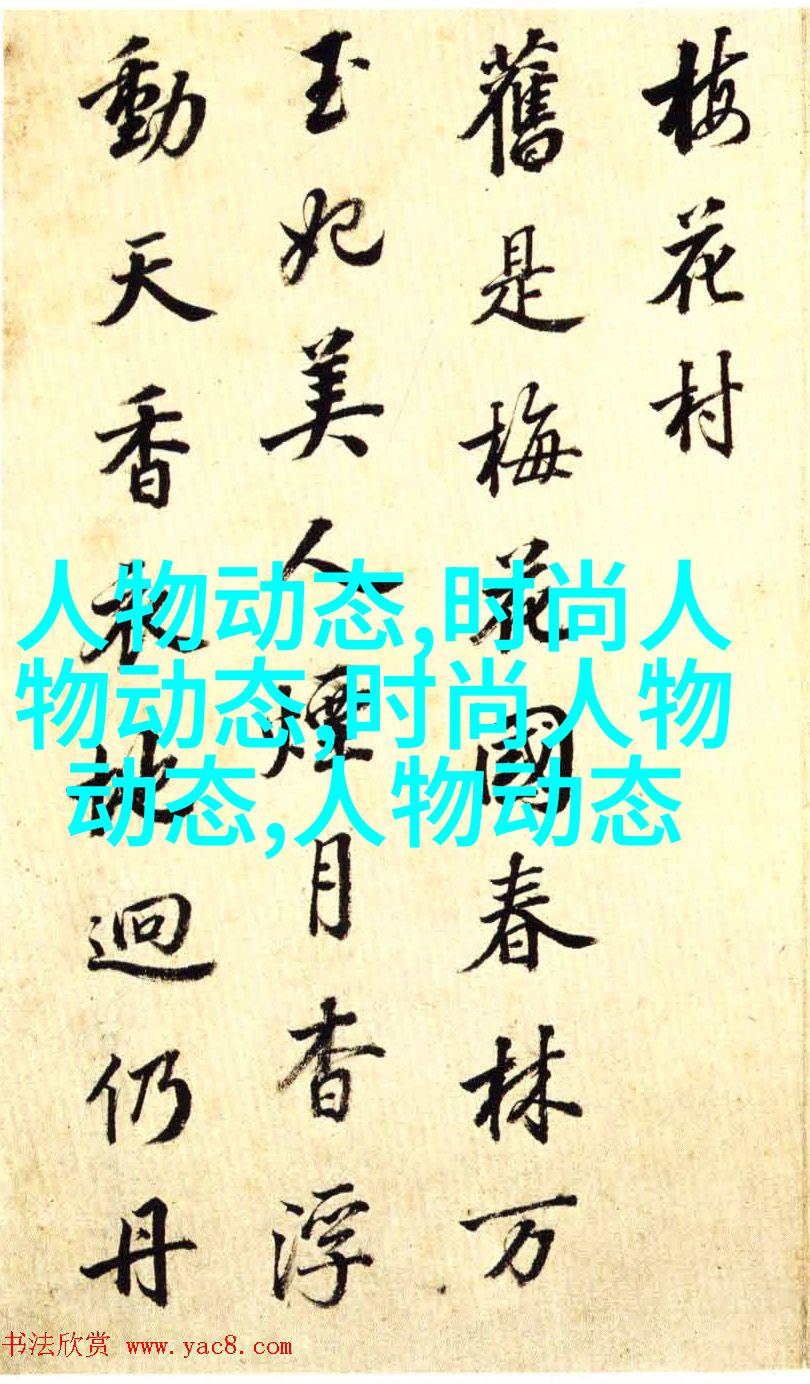 梅花村
舊是梅花國春林万
玉妃美人煙月杳浮
動天香地迥仍丹
人物动态,时尚人
物动态,时尚人物
动态,人物动态
书法欣赏 www.yac8.com